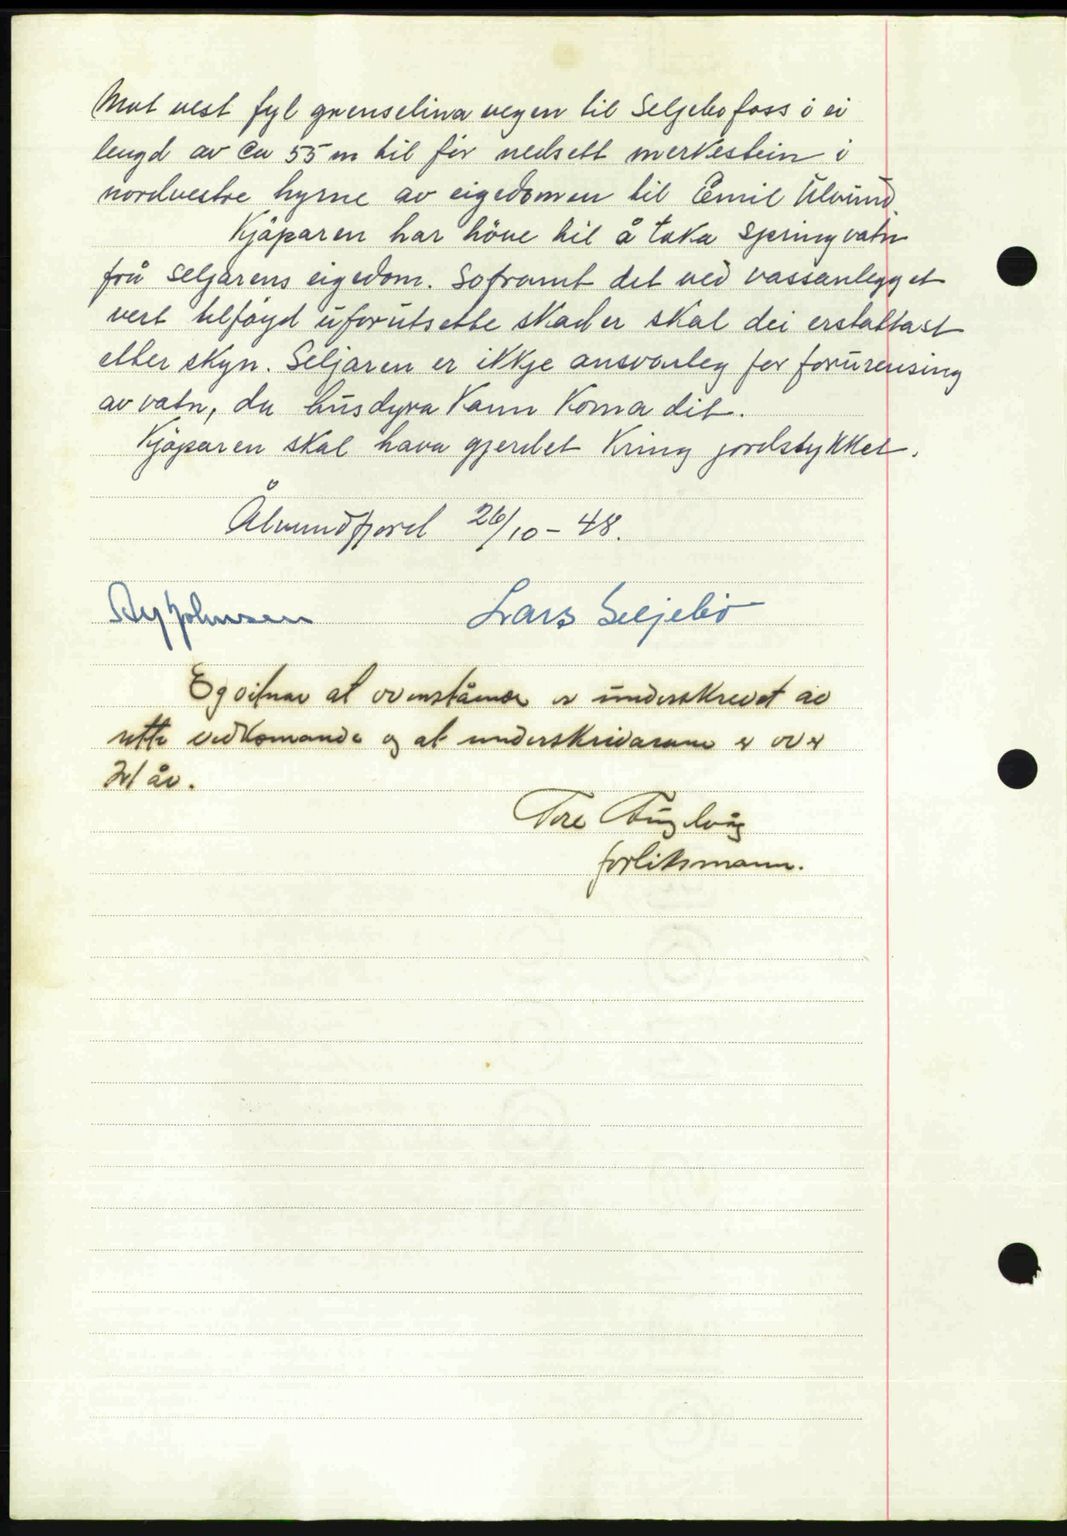 Mot vest fyl grenselina vegen til Seljebofoss i ei
lengd av ca 55 m til før nedsett merkestein i
nordvestre hyrne av eigedomen til Emil Ulvund
Kjøparen har høve til å taka springvatn
frå seljarens eigedom. Soframt det ved vassanlegget
vert tilføyd uforutsette skader skal dei erstattast
etter skyn. Seljaren er ikkje ansvarleg for forurensing
av vatn, da husdyra kann koma dit.
Kjøparen skal hava gjerdet kring jordstykket.
Ålvundfjord 26/10 - 48.
Johnsen Lars Seljebø
Eg vitnar at ovenståande er underskrevet av
rette vedkomande og at underskrivarane er over
21 år.
Tore Fuglvåg
forliksmann.